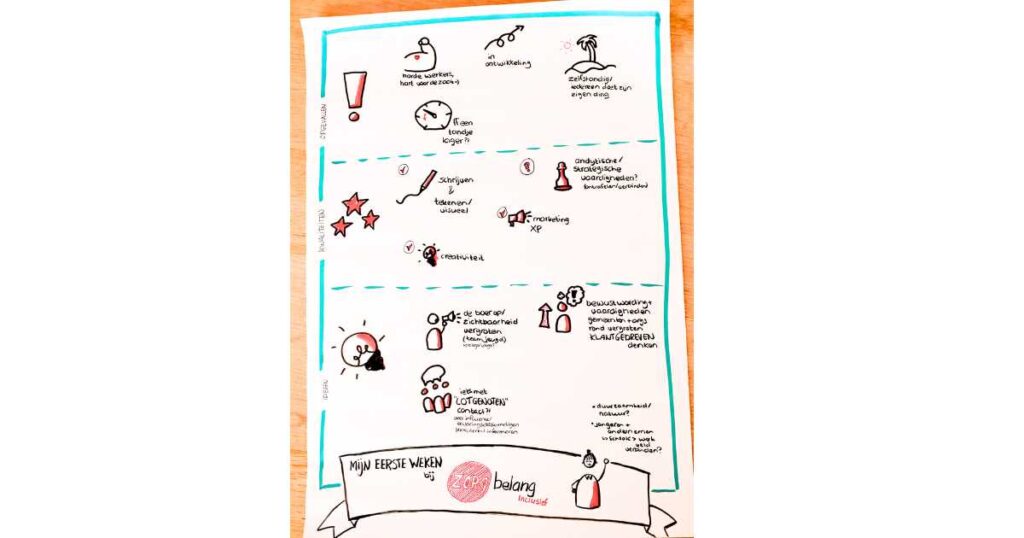 OPGEVALLEN
harde werkers,
in
ontwikkeling
zelfstandig/
iedereen doet zijn
eigen ding
een
tandje
lager?!
KWALITEITEN
schrijven
&
tekenen/
visueel
analytische/
strategische
vaardigheden?
marketing
XP
creativiteit
IDEEËN
de boer op/
zichtbaarheid
vergroten
(team jeugd)
bewustwording+
vaardigheden
gemeenten + orgs
rond vergroten
KLANTGEDREVEN
denken
iets met
"LOTGENOTEN"
contact?!
• duurzaamheid/
natuur?
• Jongeren +
ondernemen
verbinden?
MIJN EERSTE WEKEN
bij
ZORG belang
inclusief